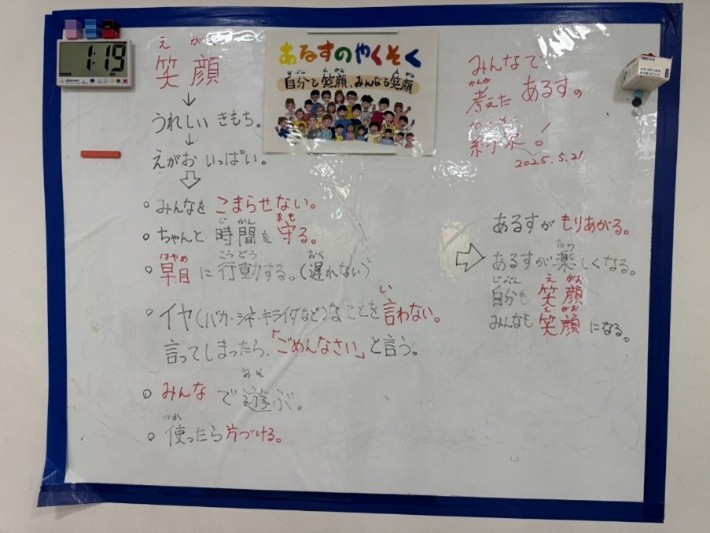 1:19
笑顔
うれしい きもち。
えがお いっぱい。
あるすのやくそく
自分も笑顔、みんなも笑顔
みんなで
考えた あるすの
約束!
2025.5.21
みんなを こまらせない。
ちゃんと 時間を 守る。
早目に 行動する。(遅れない)
イヤ(バカ・シネ・キライダなど)なことを 言わない。
言ってしまったら、「ごめんなさい」と言う。
みんな で 遊ぶ。
使ったら 片づける。
あるすが もりあがる。
あるすが 楽しくなる。
自分も 笑顔
みんなも 笑顔 になる。